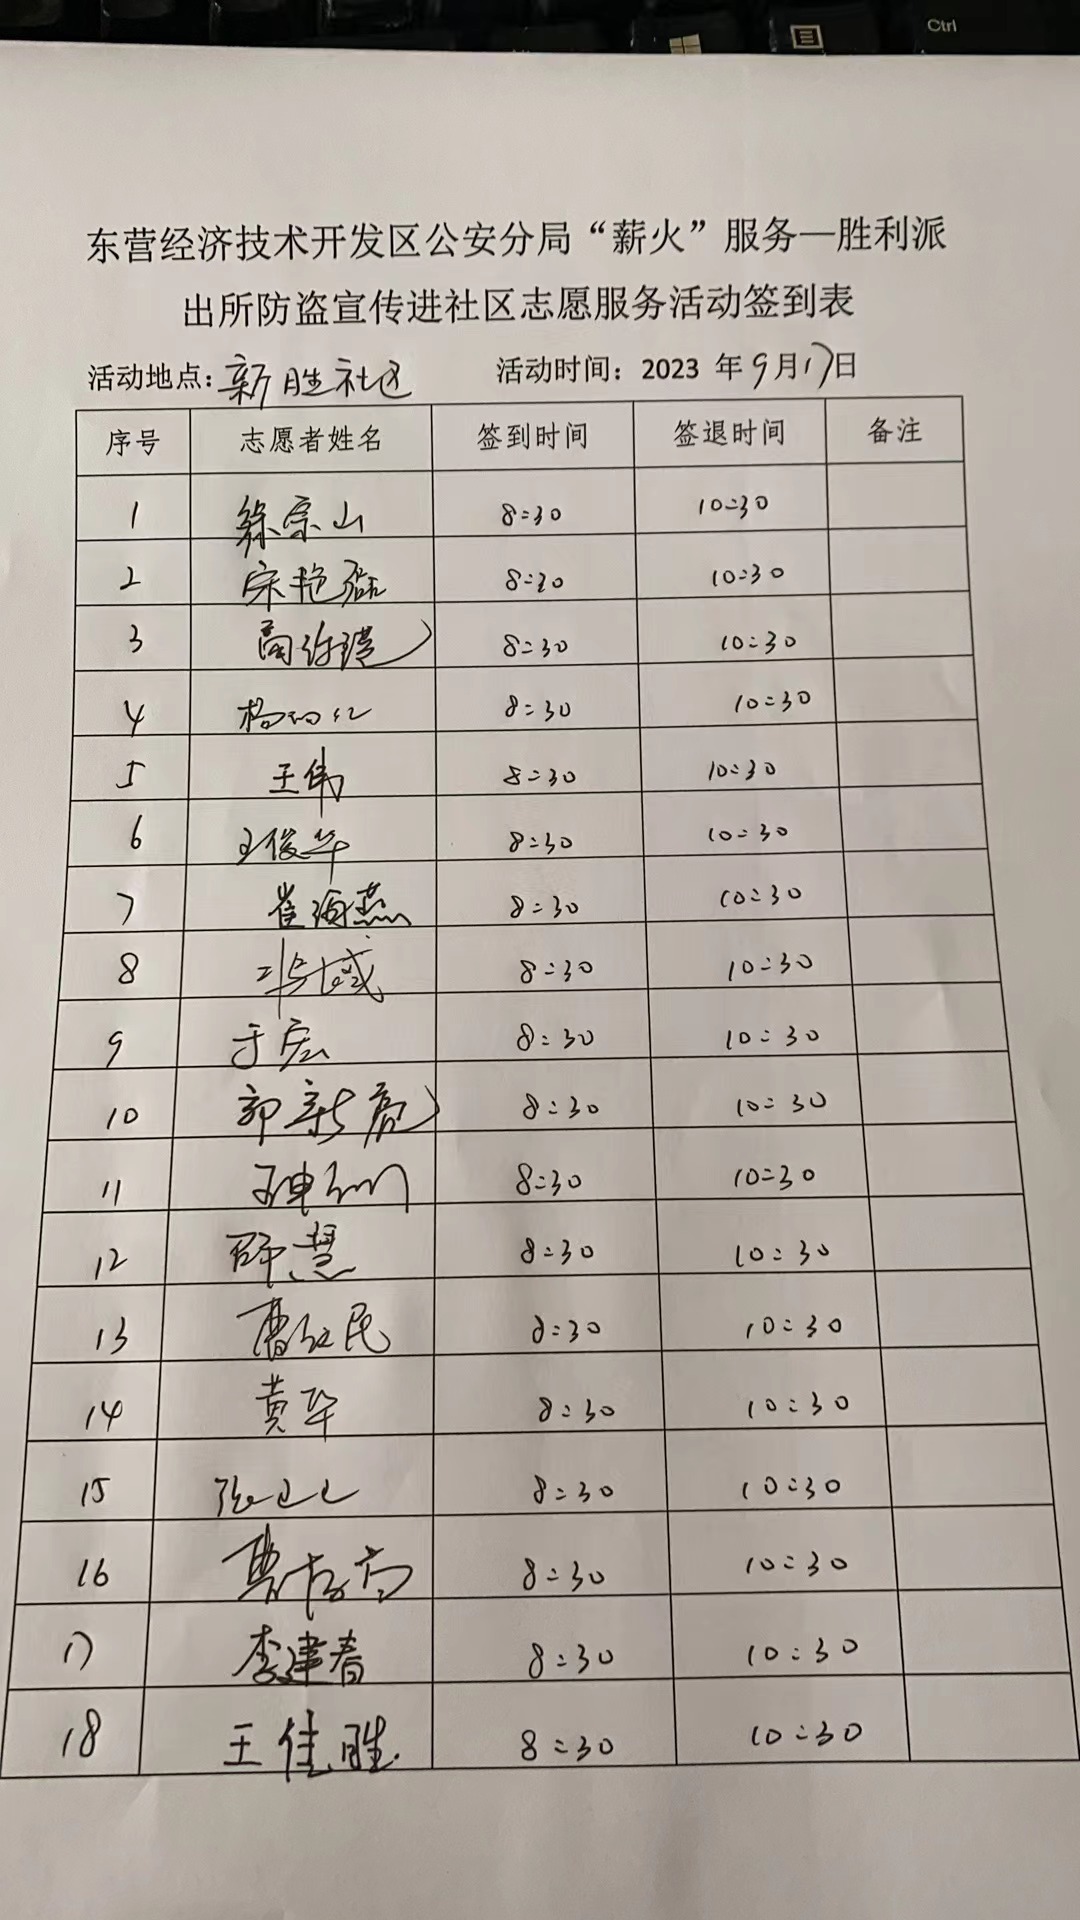 Ctrl
东营经济技术开发区公安分局“薪火”服务—胜利派
出所防盗宣传进社区志愿服务活动签到表
活动地点：新胜社区 活动时间：2023 年9月17日
序号 志愿者姓名 签到时间 签退时间 备注
1 徐宗山 8:30 10:30
2 宋艳磊 8:30 10:30
3 8:30 10:30
4 8:30 10:30
5 王伟 8:30 10:30
6 王俊华 8:30 10:30
7 崔海燕 8:30 10:30
8 8:30 10:30
9 于宏 8:30 10:30
10 郭新亮 8:30 10:30
11 8:30 10:30
12 8:30 10:30
13 曹红民 8:30 10:30
14 黄华 8:30 10:30
15 8:30 10:30
16 8:30 10:30
17 李建春 8:30 10:30
18 王佳胜 8:30 10:30